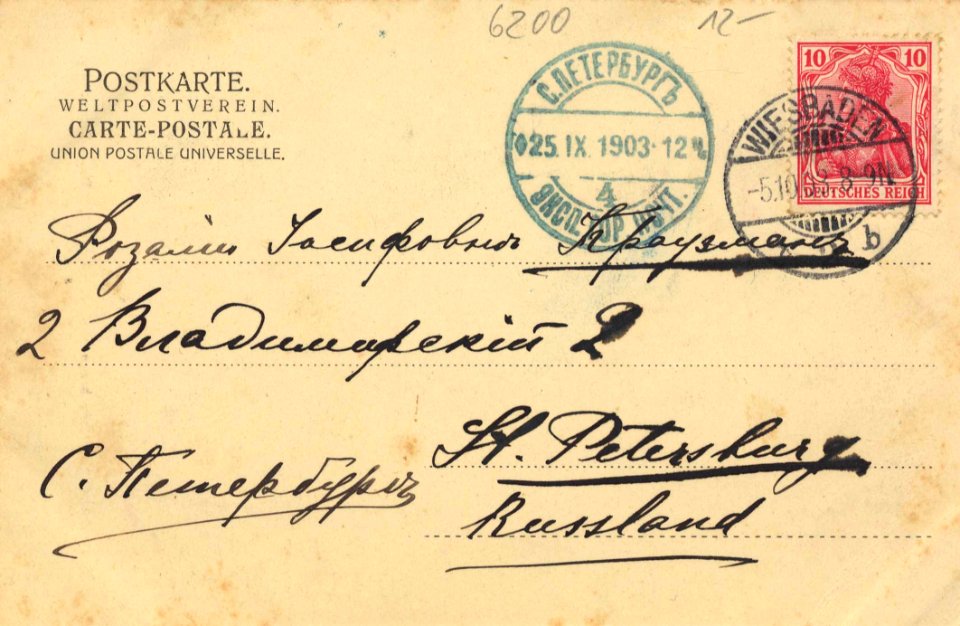 6200 12-
POSTKARTE.
WELTPOSTVEREIN.
CARTE-POSTALE.
UNION POSTALE UNIVERSELLE.
С.ПЕТЕРБУРГЪ
25. IX. 1903 · 12
4
ЭКСП. ГОР. ПОЧТ.
10 10
DEUTSCHES REICH
WIESBADEN
-5.10 8-9N
b
Розалiи Iосифовнѣ Краузманъ
2 Владимирскiй 2
St. Petersburg
С. Петербургъ
Russland